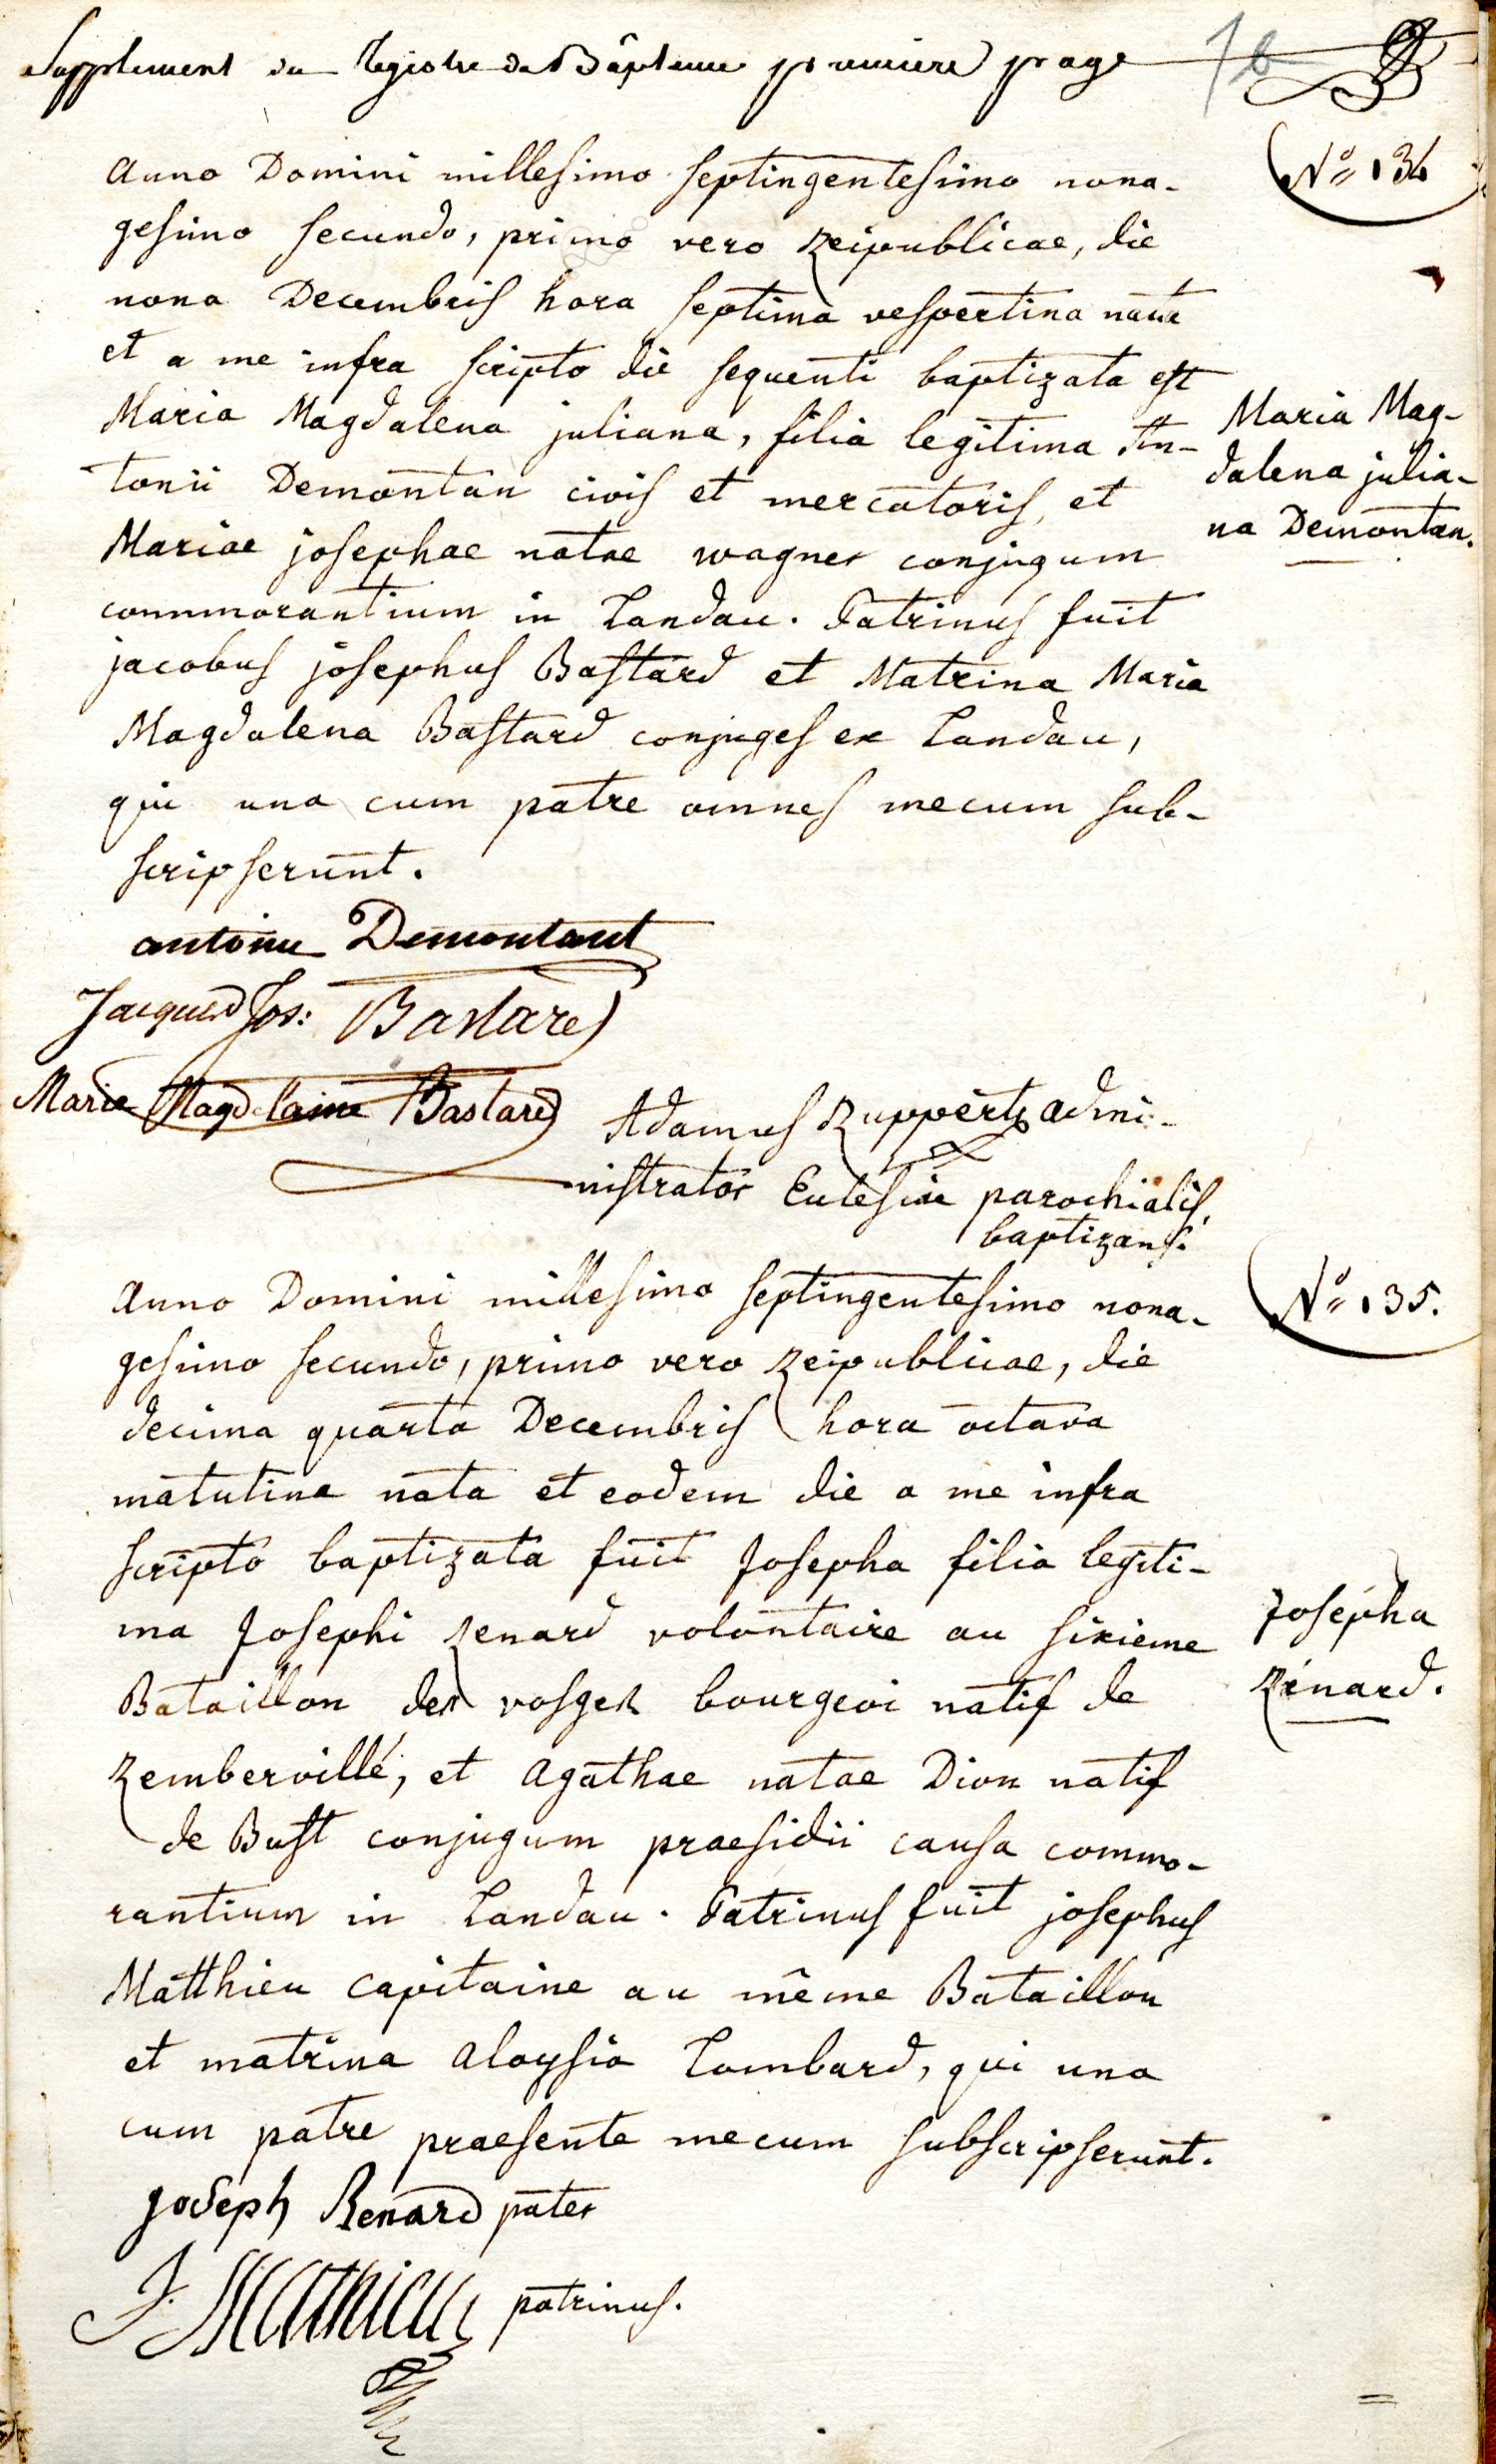 Supplement du Registre de Bâpteme premiere page
76
Nº 134
Anno Domini millesimo septingentesimo nona-
gesimo secundo, primo vero Reipublicae, die
nona Decembris hora septima vespertina nata
et a me infra scripto die sequenti baptizata est
Maria Magdalena juliana, filia legitima An-
tonii Demontan civis et mercatoris, et
Mariae josephae natae wagner conjugum
commorantium in Landau. Patrinus fuit
jacobus josephus Bastard et Matrina Maria
Magdalena Bastard conjuges ex Landau,
qui una cum patre omnes mecum sub-
scripserunt.
Maria Mag-
dalena julia-
na Demontan.
antoine Demontant
Jacques Jos: Bastard
Marie Magdelaine Bastard
Adamus Ruppertz admi-
nistrator Eclesiae parochialis,
baptizans.
Nº 135.
Anno Domini millesimo septingentesimo nona-
gesimo secundo, primo vero Reipublicae, die
decima quarta Decembris hora octava
matutina nata et eodem die a me infra
scripto baptizata fuit Josepha filia legiti-
ma Josephi Renard volontaire au sixieme
Bataillon des vosges bourgeoi natif de
Remberville, et Agathae natae Dion natif
de Bust conjugum praesidii causa commo-
rantium in Landau. Patrinus fuit josephus
Matthieu capitaine au même Bataillon
et matrina Aloysia Lombard, qui una
cum patre praesente mecum subscripserunt.
Josepha
Renard.
Joseph Renard pater
J. Mathieu patrinus.